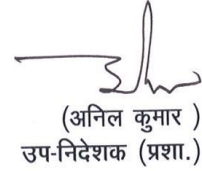 (अनिल कुमार )
उप-निदेशक (प्रशा.)